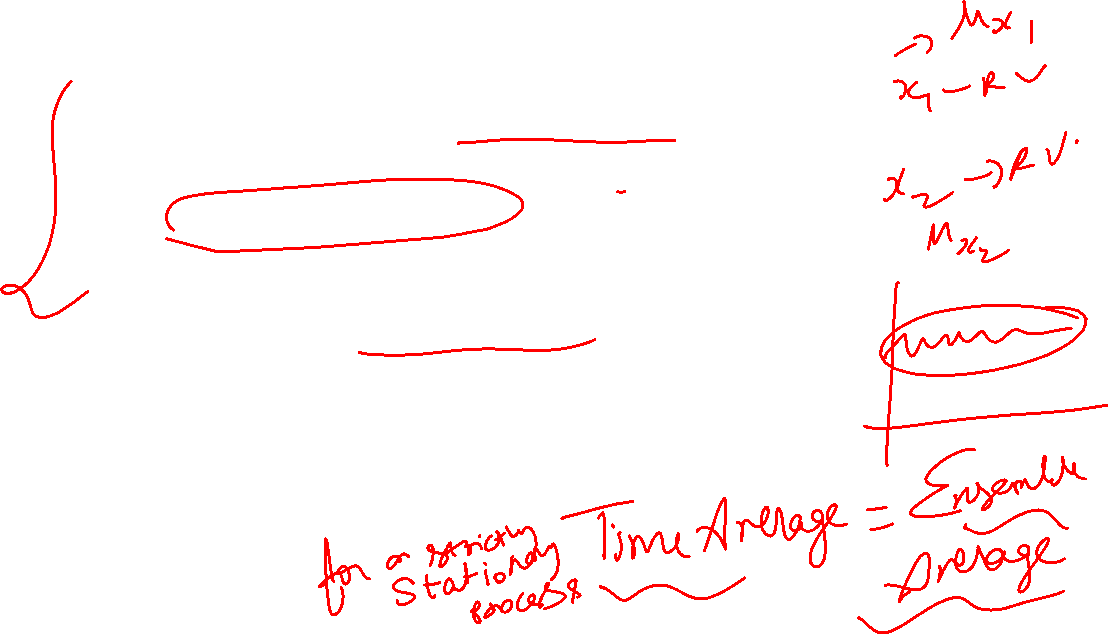 → μx1
x1 – R V
x2 → R V.
μx2
for a strictly stationary process Time Average = Ensemble Average